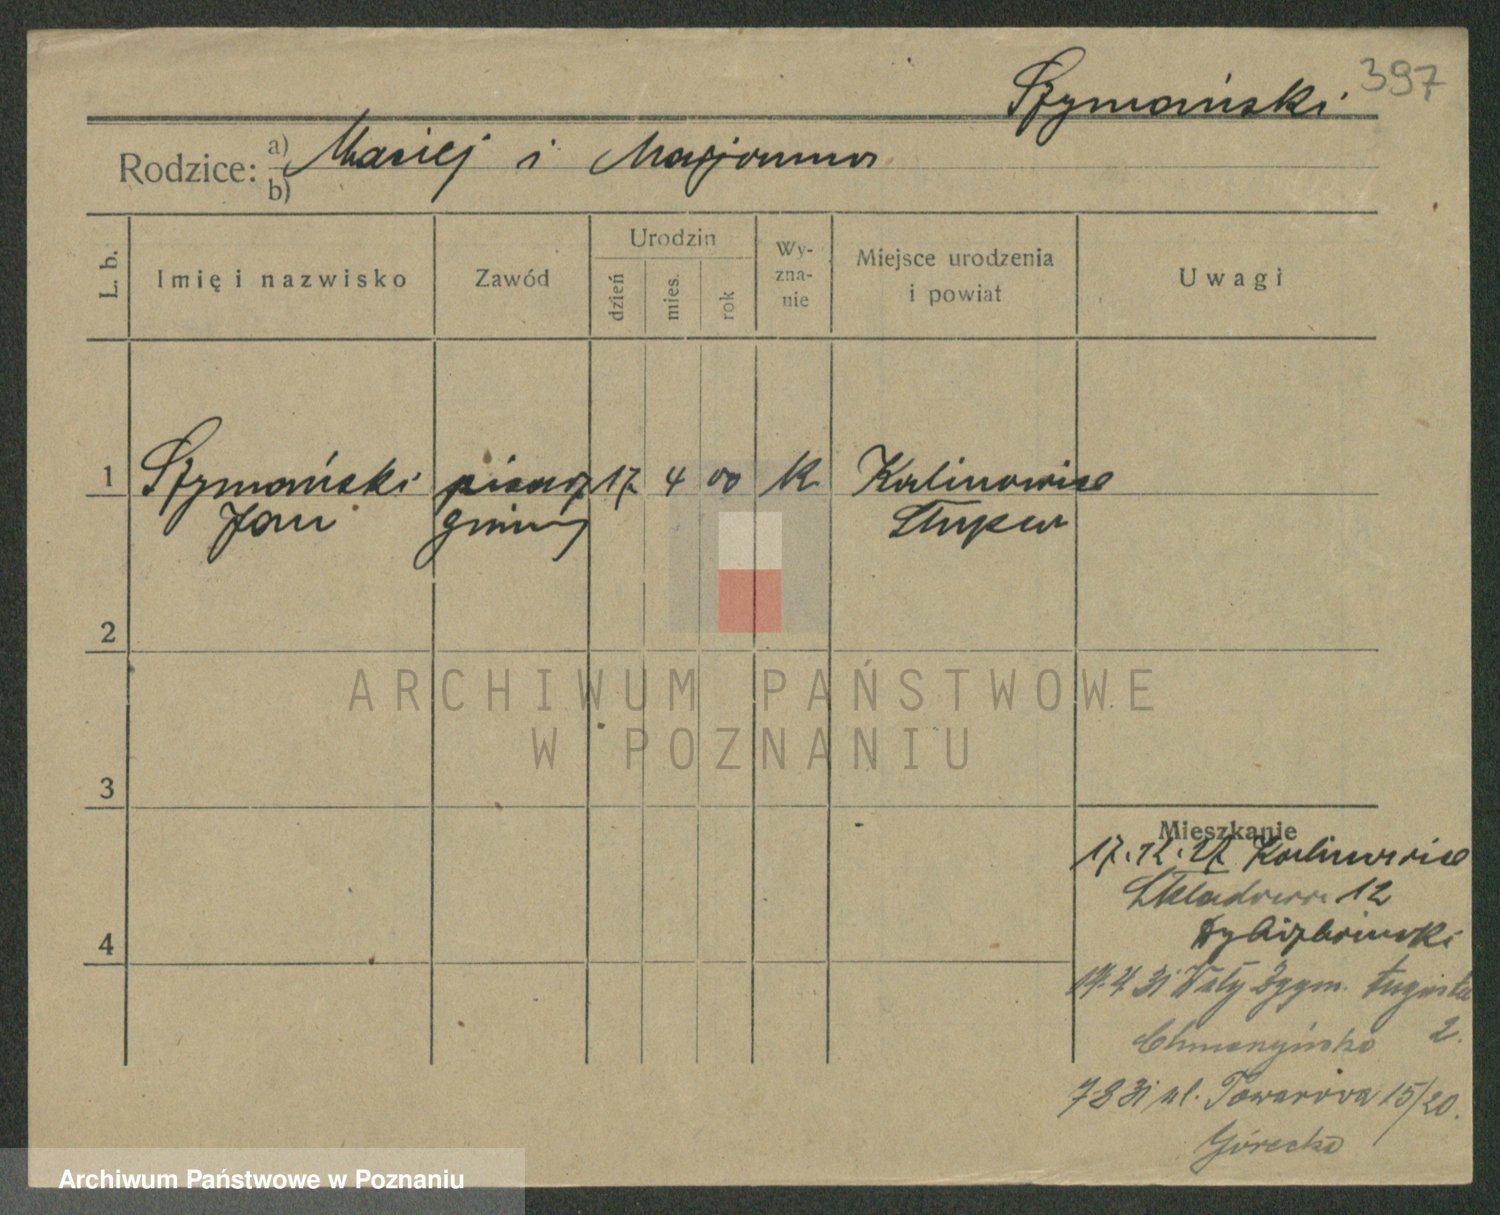 Szymański 397
Rodzice: a) Maciej i Marjanna
b)
L. b.
Imię i nazwisko
Zawód
Urodzin
dzień
mies.
rok
Wy-
zna-
nie
Miejsce urodzenia
i powiat
Uwagi
1 Szymański pisarz 17 4 00 k. Kalinowice
Jan gminny Słupca
2
ARCHIWUM PAŃSTWOWE
W POZNANIU
3
Mieszkanie
17.12.27 Kalinowice
Składowa 12
4
14.4 31 Wały Zygm. Augusta
2.
7 8 31 ul. Towarowa 15/20.
Górecka
Archiwum Państwowe w Poznaniu